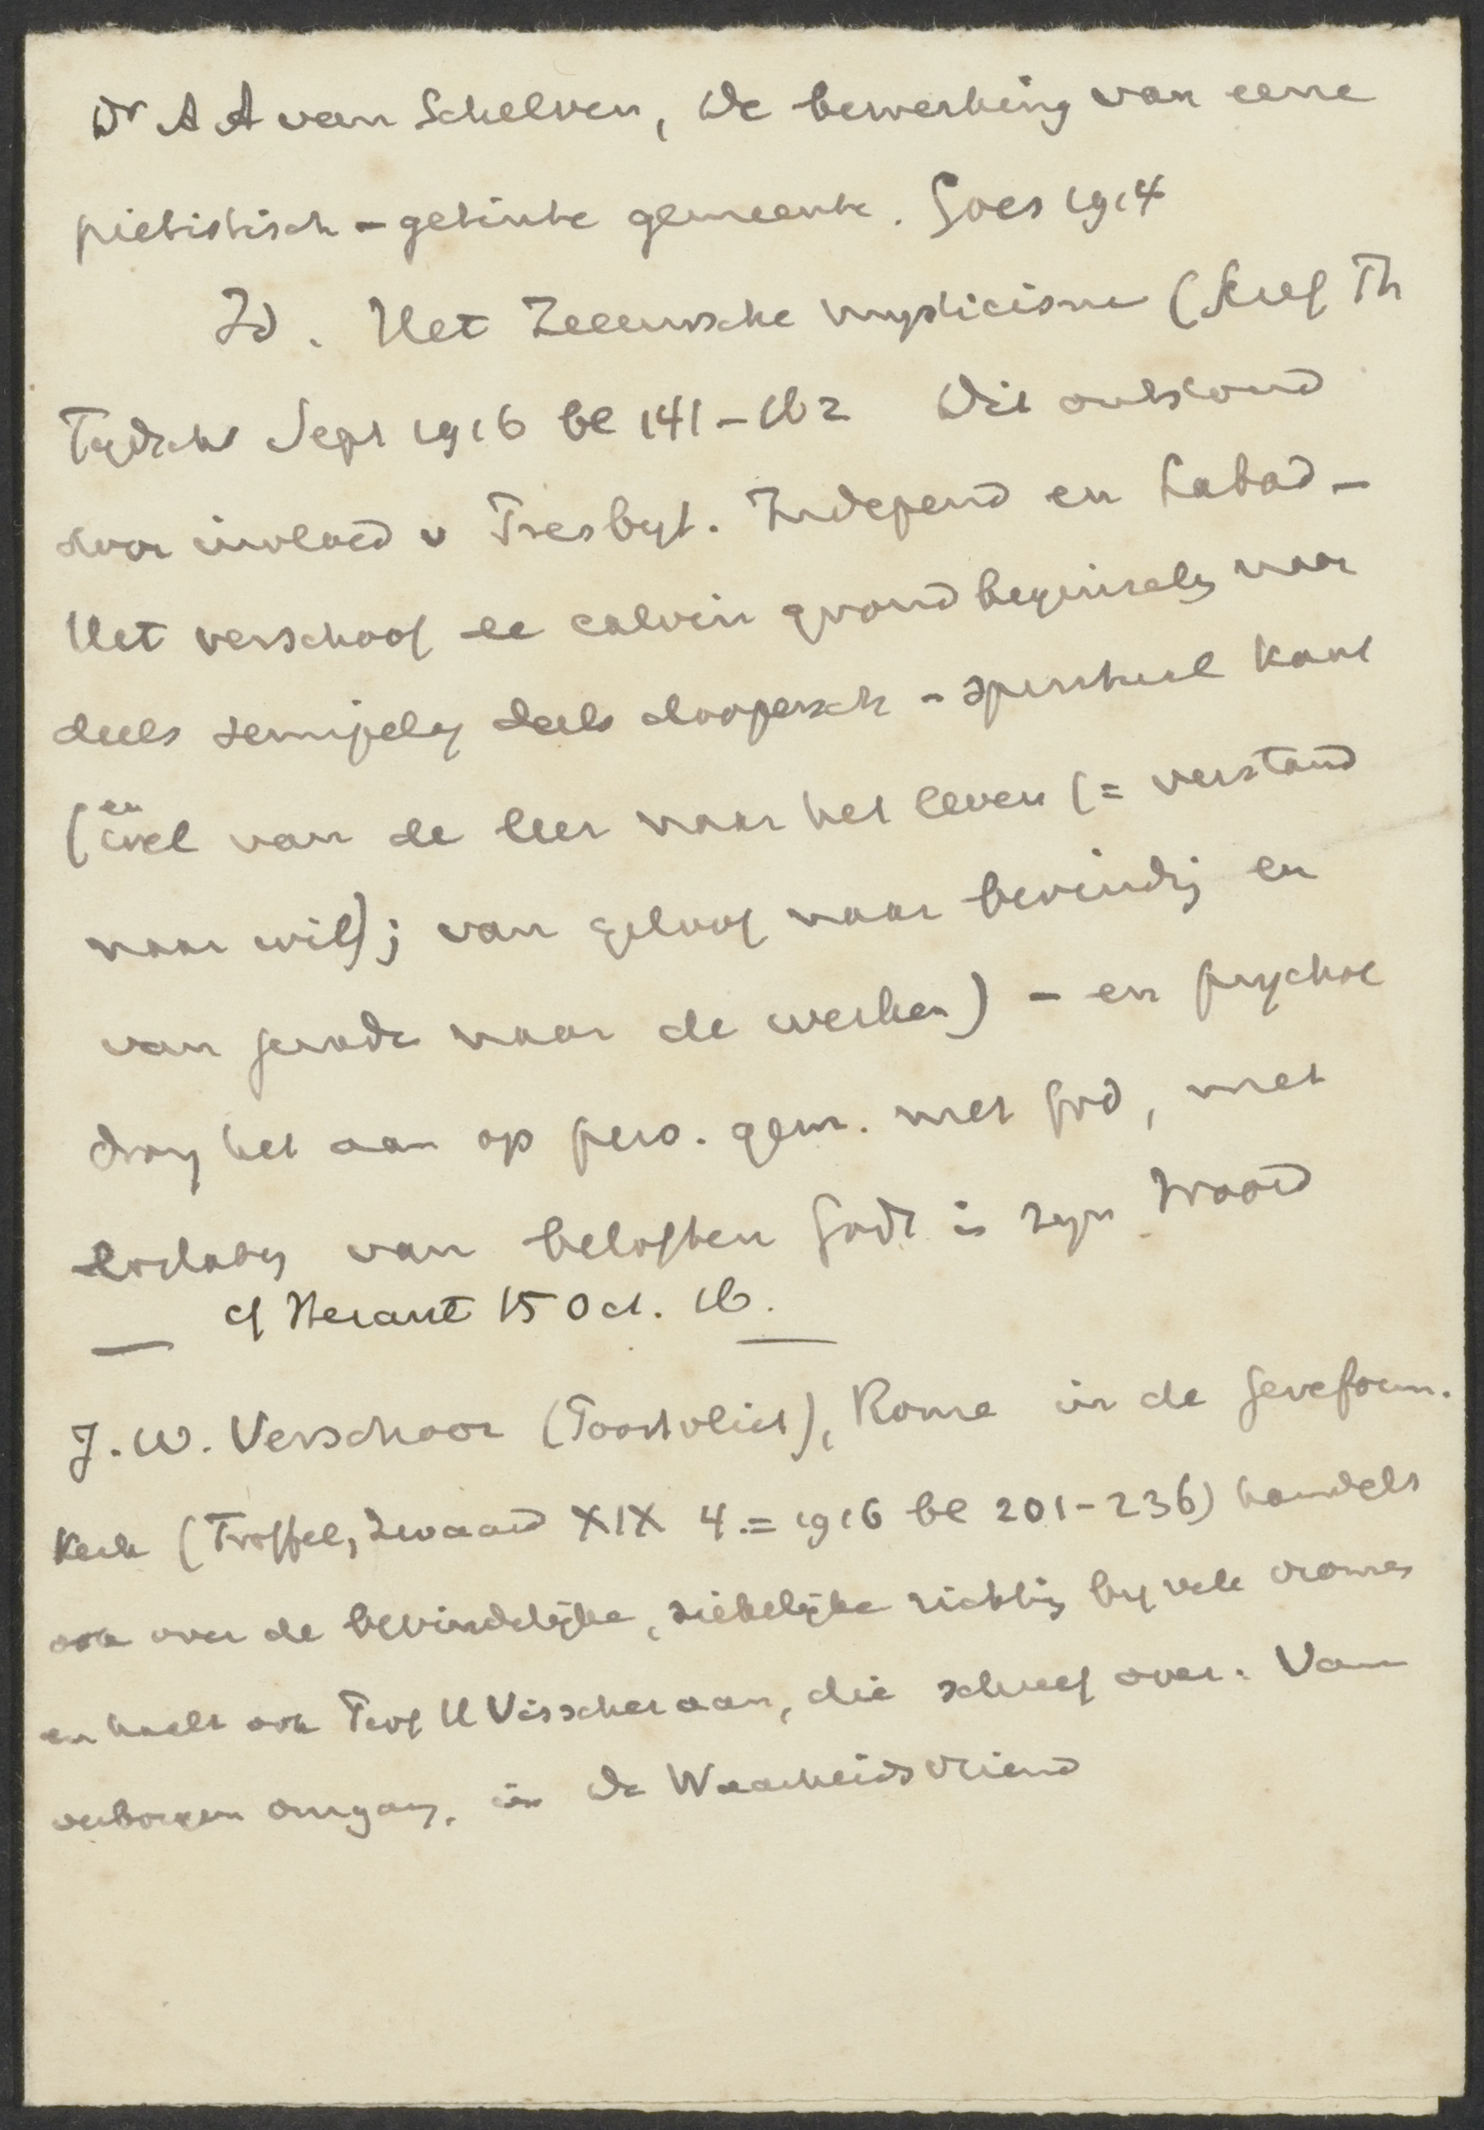 Dr A A van Schelven, De bewerking van eene
pietistisch-getinte gemeente. Goes 1914
Id. Het Zeeuwsche mysticisme (Geref Th
Tydschr Sept 1916 bl 141-162 Dit ontstond
door invloed v Presbyt. Independ en Labad-
Het verschoof de calvin grondbeginselen naar
deels semipelag deels doopersch-spiritueel kant
(en wel van de leer naar het leven (= verstand
naar wil); van geloof naar bevinding en
van genade naar de werken) - en psychol
drong het aan op pers. gem. met God, met
loslating van beloften Gods in zyn Woord
cf Heraut 15 Oct. 16.
J. W. Verschoor (Poortvliet), Rome in de Gereform.
Kerk (Troffel, Zwaard XIX 4. = 1916 bl 201-236) handelt
ook over de bevindelijke, ziekelijke richting by vele vromes
en haalt ook Prof H Visscher aan, die schreef over: Van
verborgen omgang, in De Waarheidsvriend